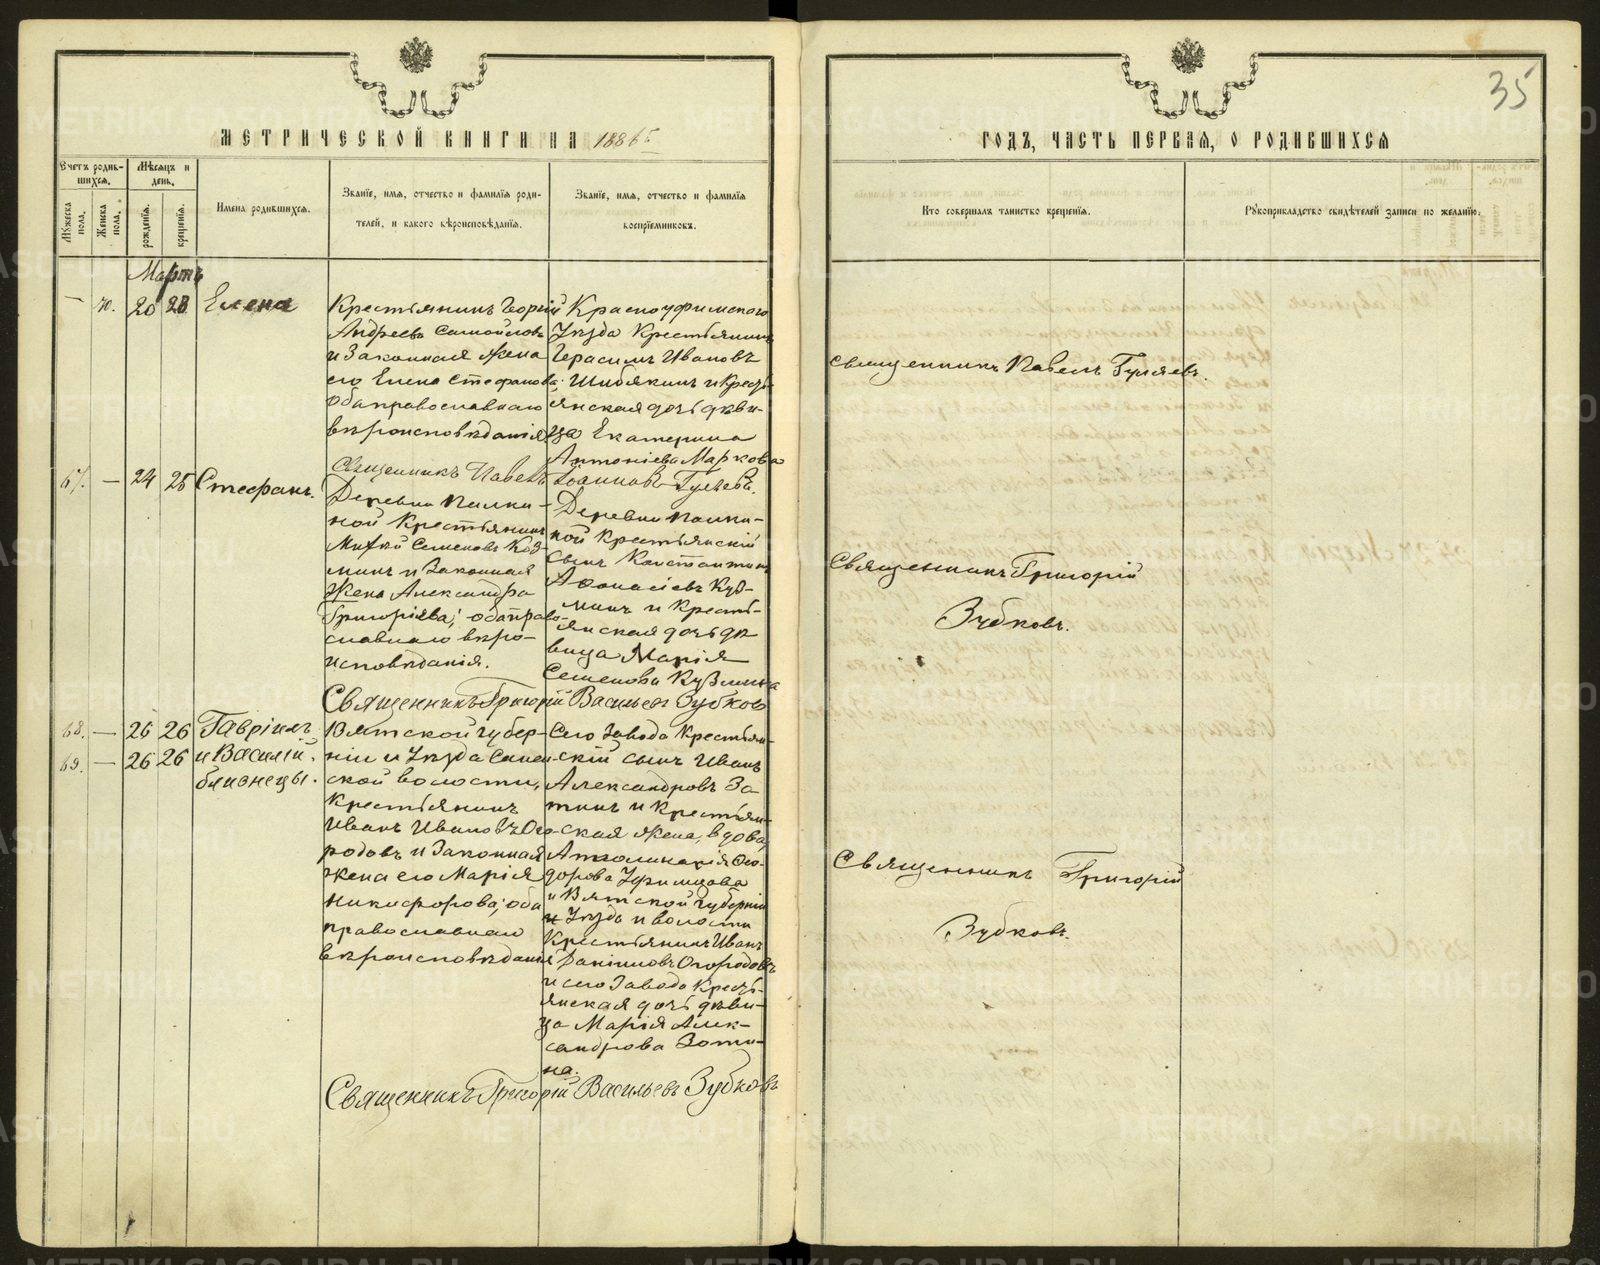 35
МЕТРИЧЕСКОЙ КНИГИ НА 1886
ГОДЪ, ЧАСТЬ ПЕРВАЯ, О РОДИВШИХСЯ
Счетъ родив-
шихся.
Мужеска пола.
Женска пола.
Мѣсяцъ и
день.
рожденія.
крещенія.
Имена родившихся.
Званіе, имя, отчество и фамилія роди-
телей, и какого вѣроисповѣданія.
Званіе, имя, отчество и фамилія
воспріемниковъ.
Кто совершалъ таинство крещенія.
Рукоприкладство свидѣтелей записи по желанію.
Мартъ
— 70. 20 23 Елена
Крестьянинъ Георгій
Андреевъ Самойловъ
и Законная жена
его Елена Стефанова;
оба православнаго
вѣроисповѣданія
Красноуфимскаго
Уѣзда Крестьянинъ
Герасимъ Ивановъ
Шибякинъ и Кресть-
янская дочь дѣви-
ца Екатерина
Антоніева Маркова
Священникъ Павелъ Гуляевъ.
Священникъ Павелъ Іоанновъ Гуляевъ.
67. — 24 25 Стефанъ.
Деревни Палки-
ной Крестьянинъ
Семеновъ Куз-
минъ и Законная
Жена Александра
Григоріева; оба право-
славнаго вѣро-
исповѣданія.
Деревни Палки-
ной Крестьянскій
Сынъ Константинъ
Афонасіевъ Куз-
минъ и Кресть-
янская дочь дѣ-
вица Марія
Семенова Кузмина
Священникъ Григорій
Зубковъ.
Священникъ Григорій Васильевъ Зубковъ
68. — 26 26 Гавріилъ
69. — 26 26 и Василій.
близнецы.
Вятской губер-
ніи и Уѣзда
ской волости,
Крестьянинъ
Иванъ Ивановъ Ого-
родовъ и Законная
жена его Марія
Никифорова; оба
православнаго
вѣроисповѣданія
Сего Завода Крестьян-
скій сынъ Иванъ
Александровъ Зо-
тинъ и Крестьян-
ская жена, вдова,
Апполинарія Фео-
дорова Уфимцова
и Вятской губерніи
и Уѣзда и волости
Крестьянинъ Иванъ
Огородовъ
и сего Завода Кресть-
янская дочь дѣви-
ца Марія Алек-
сандрова Зоти-
на.
Священникъ Григорій
Зубковъ.
Священникъ Григорій Васильевъ Зубковъ
METRIKI.GASO-URAL.RU